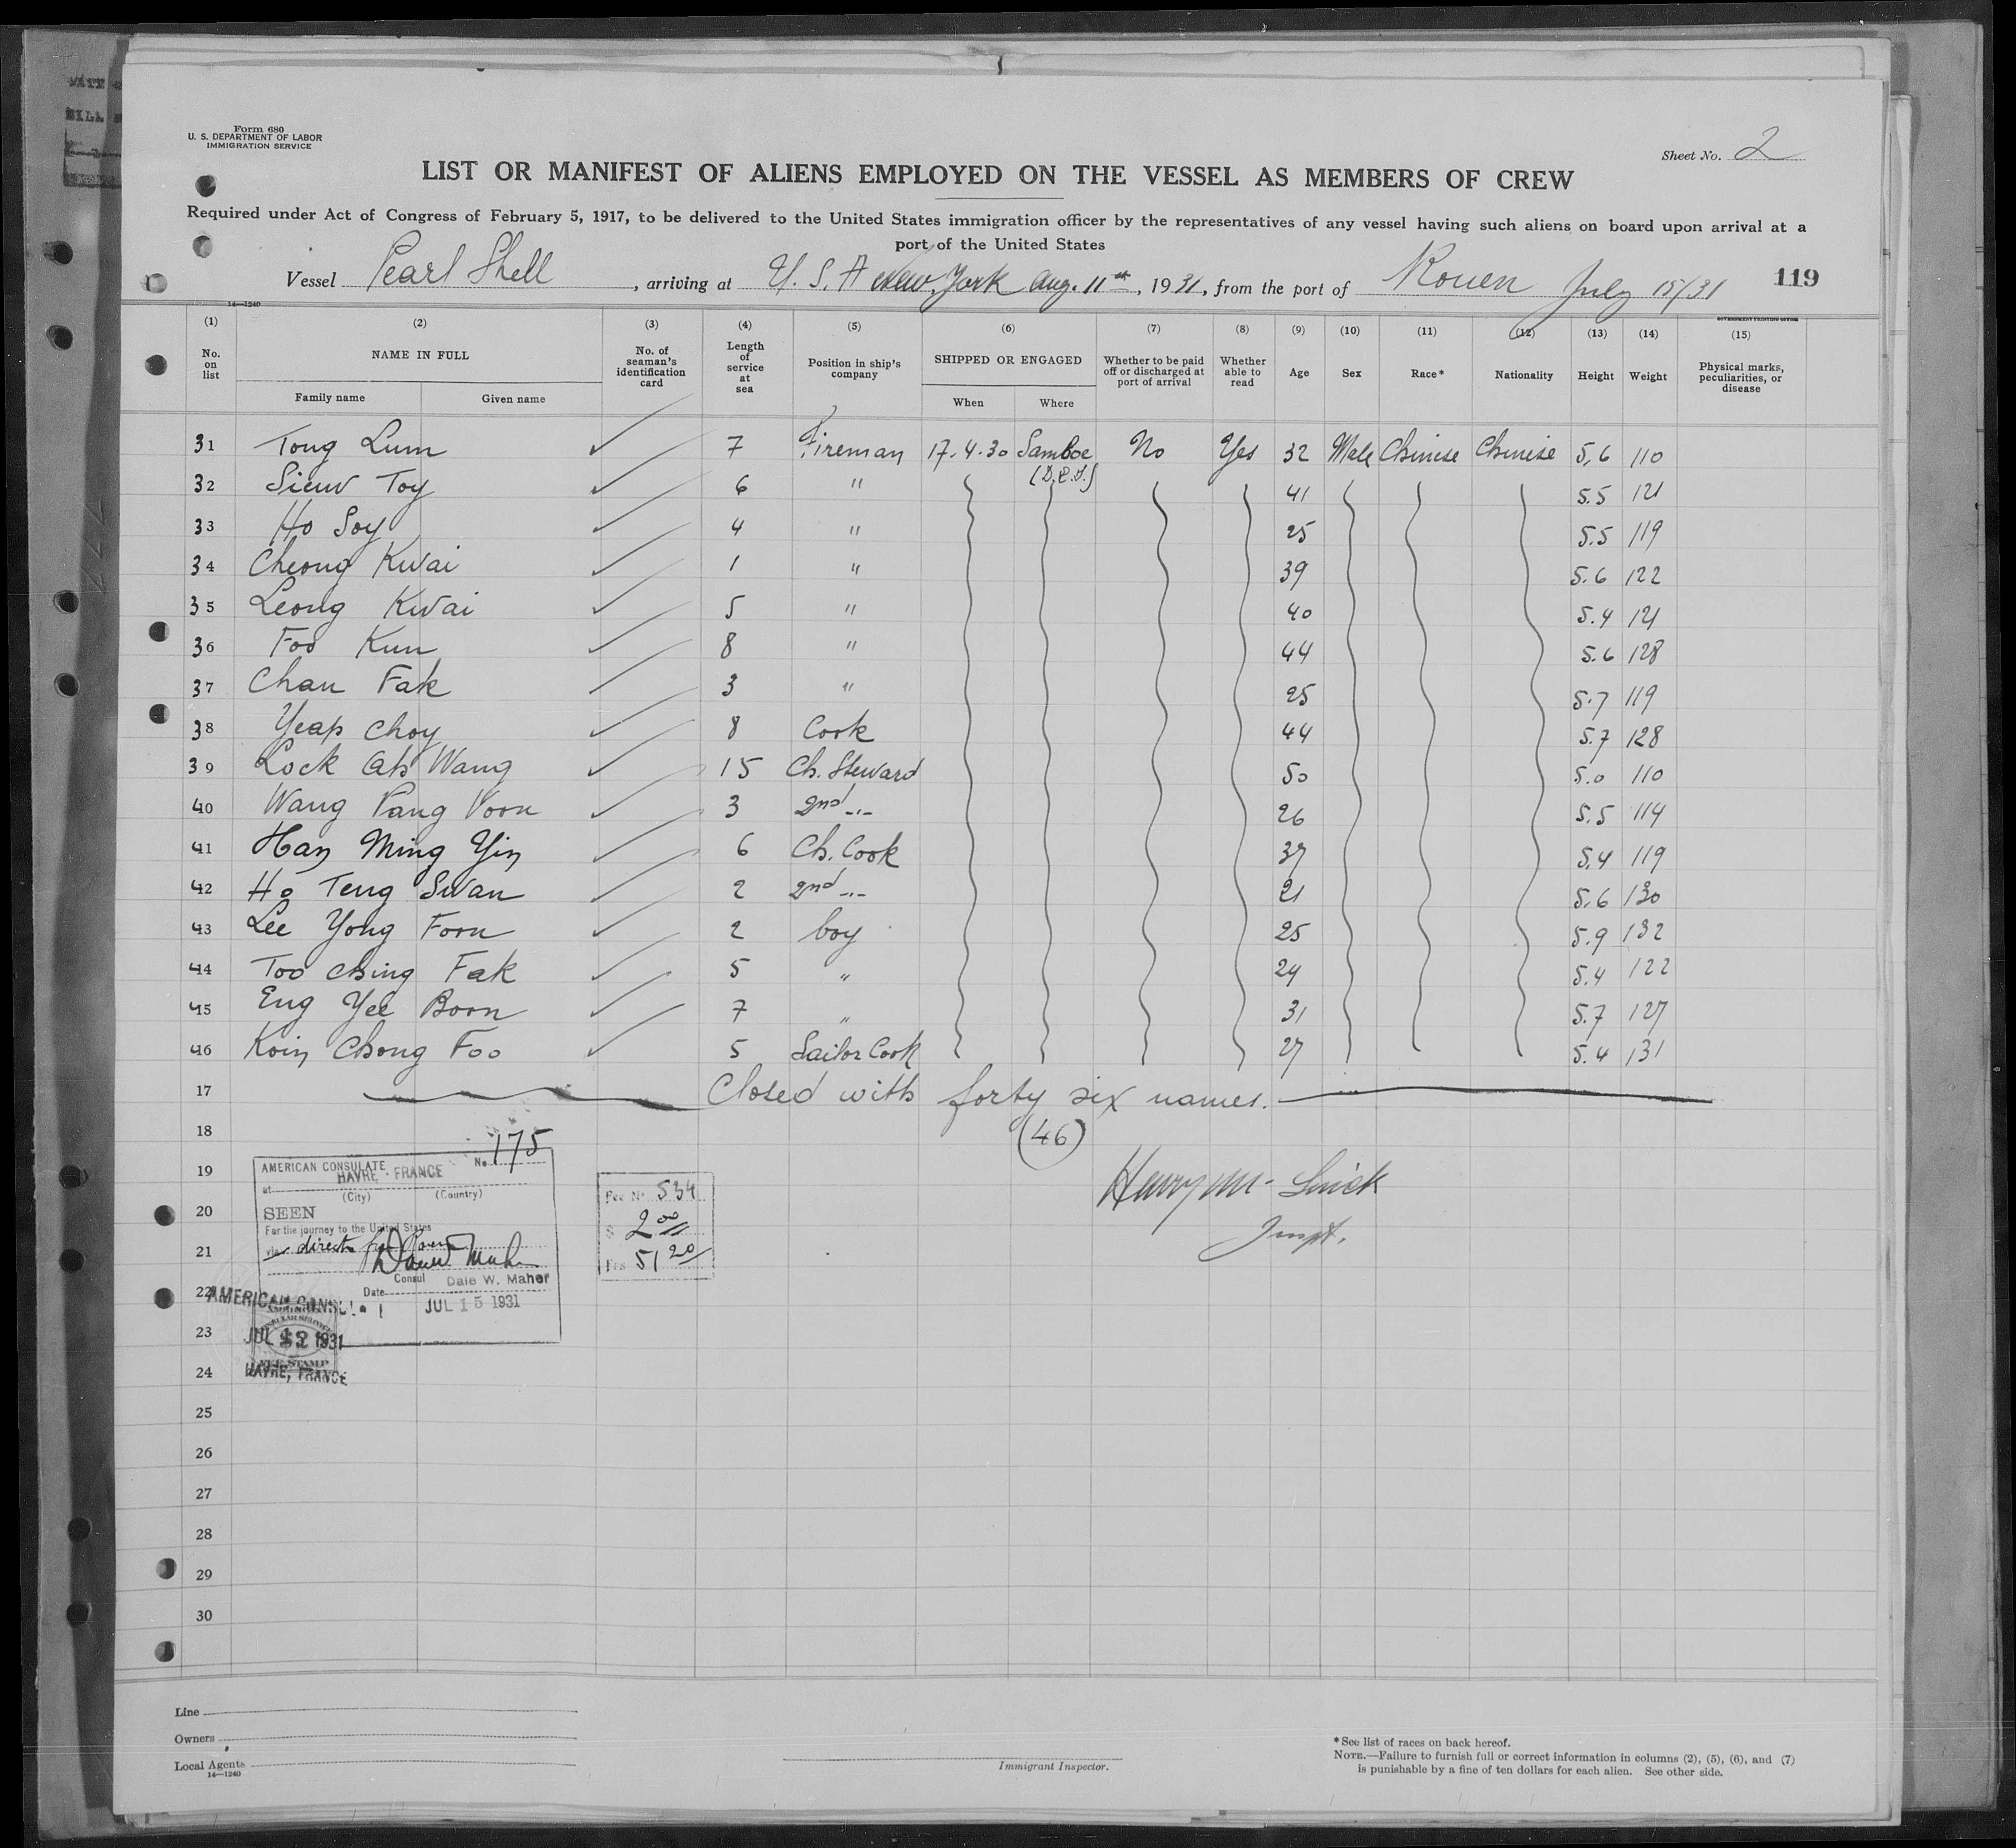 Form 680
U. S. DEPARTMENT OF LABOR
IMMIGRATION SERVICE
Sheet No. 2
LIST OR MANIFEST OF ALIENS EMPLOYED ON THE VESSEL AS MEMBERS OF CREW
Required under Act of Congress of February 5, 1917, to be delivered to the United States immigration officer by the representatives of any vessel having such aliens on board upon arrival at a
port of the United States
Vessel Pearl Shell, arriving at U. S. A New York Aug. 11th, 1931, from the port of Rouen July 15/31 119
14—1240
GOVERNMENT PRINTING OFFICE
(1) (2) (3) (4) (5) (6) (7) (8) (9) (10) (11) (12) (13) (14) (15)
No. on list NAME IN FULL No. of seaman's identification card Length of service at sea Position in ship's company SHIPPED OR ENGAGED Whether to be paid off or discharged at port of arrival Whether able to read Age Sex Race* Nationality Height Weight Physical marks, peculiarities, or disease
Family name Given name When Where
31 Tong Lum ✓ 7 Fireman 17.4.30 Samboe No Yes 32 Male Chinese Chinese 5,6 110
(D.E.I.)
32 Sieuw Toy ✓ 6 " 41 5.5 121
33 Ho Soy ✓ 4 " 25 5.5 119
34 Cheong Kwai ✓ 1 " 39 5.6 122
35 Leong Kwai ✓ 5 " 40 5.4 121
36 Foo Kun ✓ 8 " 44 5.6 128
37 Chan Fak 3 " 25 5.7 119
38 Yeap Choy ✓ 8 Cook 44 5.7 128
39 Lock Ah Wang ✓ 15 Ch. Steward 50 5.0 110
40 Wang Pang Voon ✓ 3 2nd -"- 26 5.5 114
41 Han Ming Yin ✓ 6 Ch. Cook 37 5.4 119
42 Ho Teng Swan ✓ 2 2nd -"- 21 5.6 130
43 Lee Yong Foon ✓ 2 boy 25 5.9 132
44 Too Ching Fak ✓ 5 " 24 5.4 122
45 Eng Yee Boon ✓ 7 " 31 5.7 127
46 Koin Chong Foo ✓ 5 Sailor Cook 27 5.4 131
17 Closed with forty six names.
18 (46)
19
20
21
22
23
24
25
26
27
28
29
30
AMERICAN CONSULATE No. 175
at HAVRE, FRANCE
(City) (Country)
SEEN
For the journey to the United States
via direct from Rouen
Consul Dale W. Maher
Date JUL 15 1931
AMERICAN CONSUL
JUL 1931
FEE STAMP
HAVRE, FRANCE
Fee No 534
$ 2 00
Frs 51 20
Inspt.
Line
Owners
Local Agents
14—1240
Immigrant Inspector.
*See list of races on back hereof.
NOTE.—Failure to furnish full or correct information in columns (2), (5), (6), and (7)
is punishable by a fine of ten dollars for each alien. See other side.